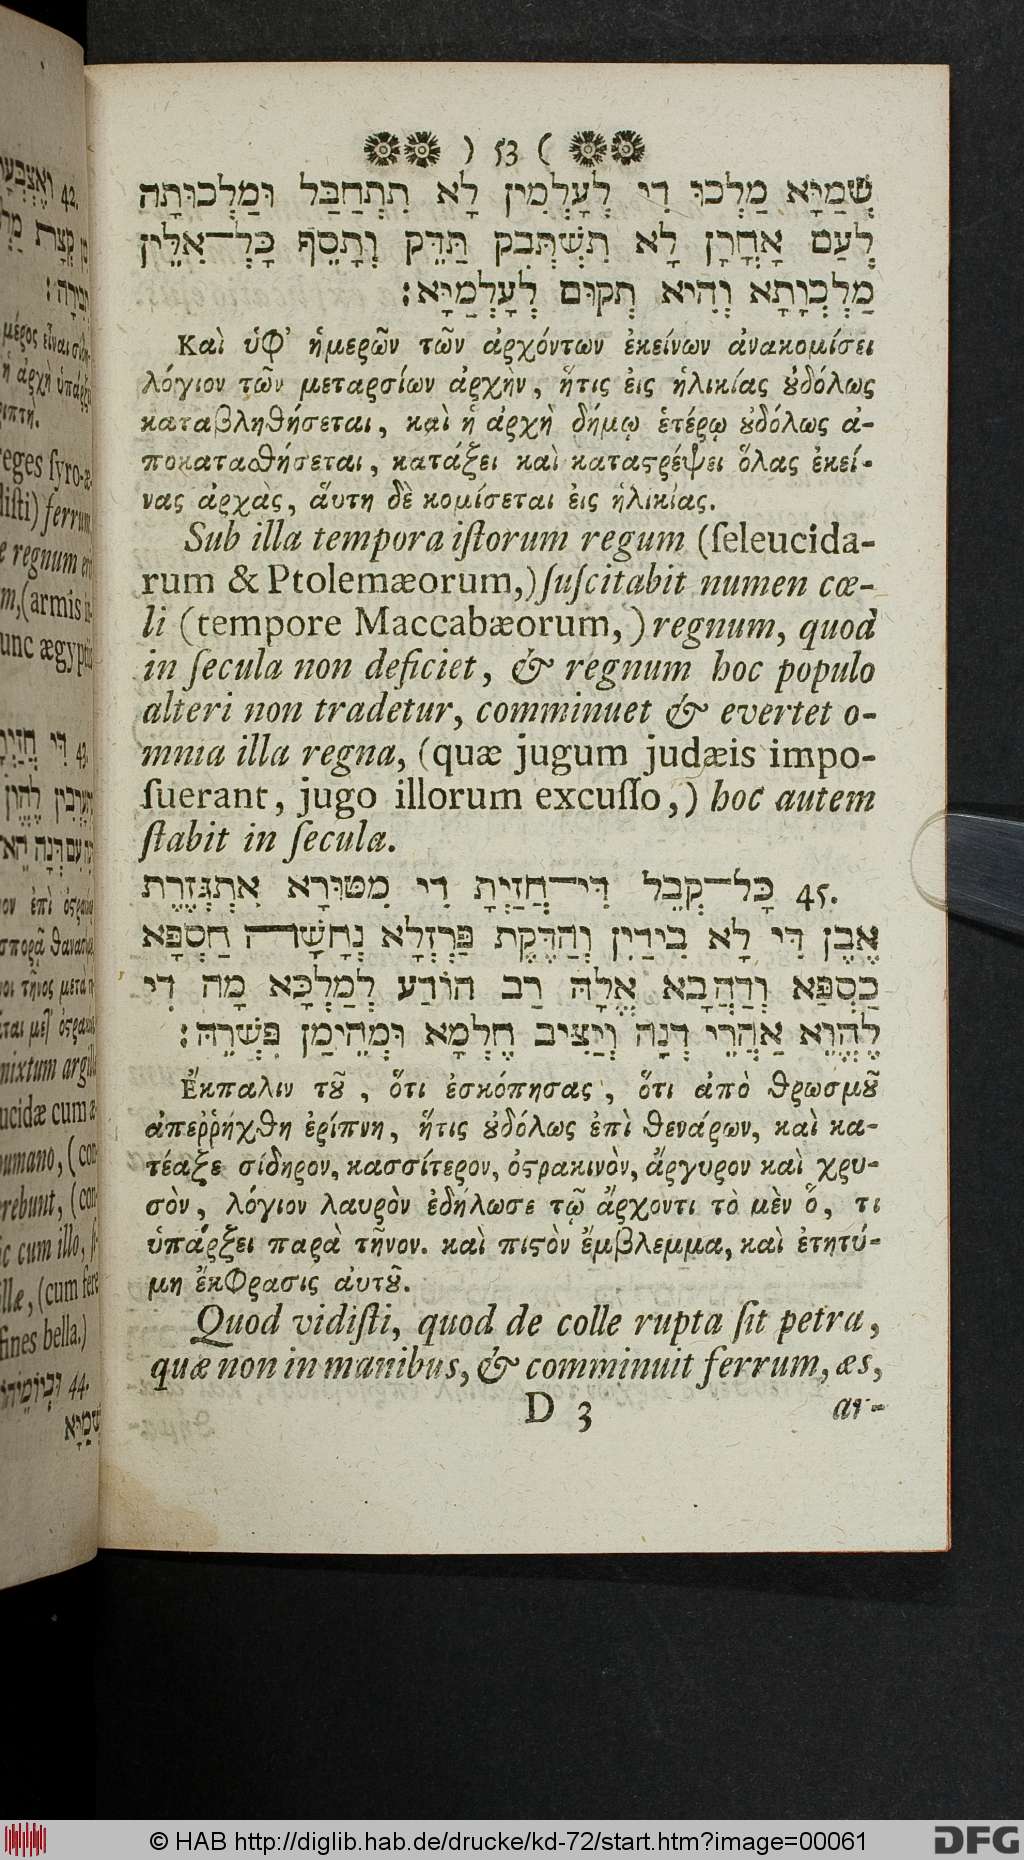 ) 53 (
שְׁמַיָּא מַלְכוּ דִי לְעָלְמִין לָא תִתְחַבַּל וּמַלְכוּתָה
לְעַם אָחֳרָן לָא תִשְׁתְּבִק תַּדֵּק וְתָסֵף כָּל־אִלֵּין
מַלְכְוָתָא וְהִיא תְקוּם לְעָלְמַיָּא׃
Καὶ ὑφ' ἡμερῶν τῶν ἀρχόντων ἐκείνων ἀνακομίσει
λόγιον τῶν μεταρσίων ἀρχὴν, ἥτις ἐις ἡλικίας ȣ̓δόλως
καταβληθήσεται, καὶ ἡ ἀρχὴ δήμῳ ἑτέρῳ ȣ̓δόλως ἀ-
ποκαταϑήσεται, κατάξει καὶ καταϛρέψει ὅλας ἐκεί-
νας ἀρχὰς, ἅυτη δὲ κομίσεται ἐις ἡλικίας.
Sub illa tempora iſtorum regum (ſeleucida-
rum & Ptolemæorum,) ſuſcitabit numen cœ-
li (tempore Maccabæorum,) regnum, quod
in ſecula non deficiet, & regnum hoc populo
alteri non tradetur, comminuet & evertet o-
mnia illa regna, (quæ jugum judæis impo-
ſuerant, jugo illorum excuſſo,) hoc autem
ſtabit in ſecula.
45. כָּל־קְבֵל דִּי־חֲזַיְתָ דִי מִטּוּרָא אִתְגְּזֶרֶת
אֶבֶן דִּי לָא בִידַיִן וְהַדֶּקֶת פַּרְזְלָא נְחָשָׁה חַסְפָּא
כַסְפַּא וְדַהֲבָא אֱלָהּ רַב הוֹדַע לְמַלְכָּא מָה דִי
לֶהֱוֵא אַהֲרֵי דְנָה וְיַצִּיב חֶלְמָא וּמְהֵימַן פִּשְׁרֵהּ׃
Ἔκπαλιν τȣ͂, ὅτι ἐσκόπησας, ὅτι ἀπὸ θρωσμȣ͂
ἀπεῤῥήχθη ἐρίπνη, ἥτις ȣ̓δόλως ἐπὶ θενάρων, καὶ κα-
τέαξε σίδηρον, κασσίτερον, ὀϛρακινὸν, ἄργυρον καὶ χρυ-
σὸν, λόγιον λαυρὸν ἐδήλωσε τῷ ἄρχοντι τὸ μὲν ὅ, τι
ὑπάρξει παρὰ τῆνον. καὶ πιϛὸν ἔμβλεμμα, καὶ ἐτητύ-
μη ἔκφρασις ἀυτȣ͂.
Quod vidiſti, quod de colle rupta ſit petra,
quæ non in manibus, & comminuit ferrum, æs,
D 3 ar-
© HAB http://diglib.hab.de/drucke/kd-72/start.htm?image=00061
DFG